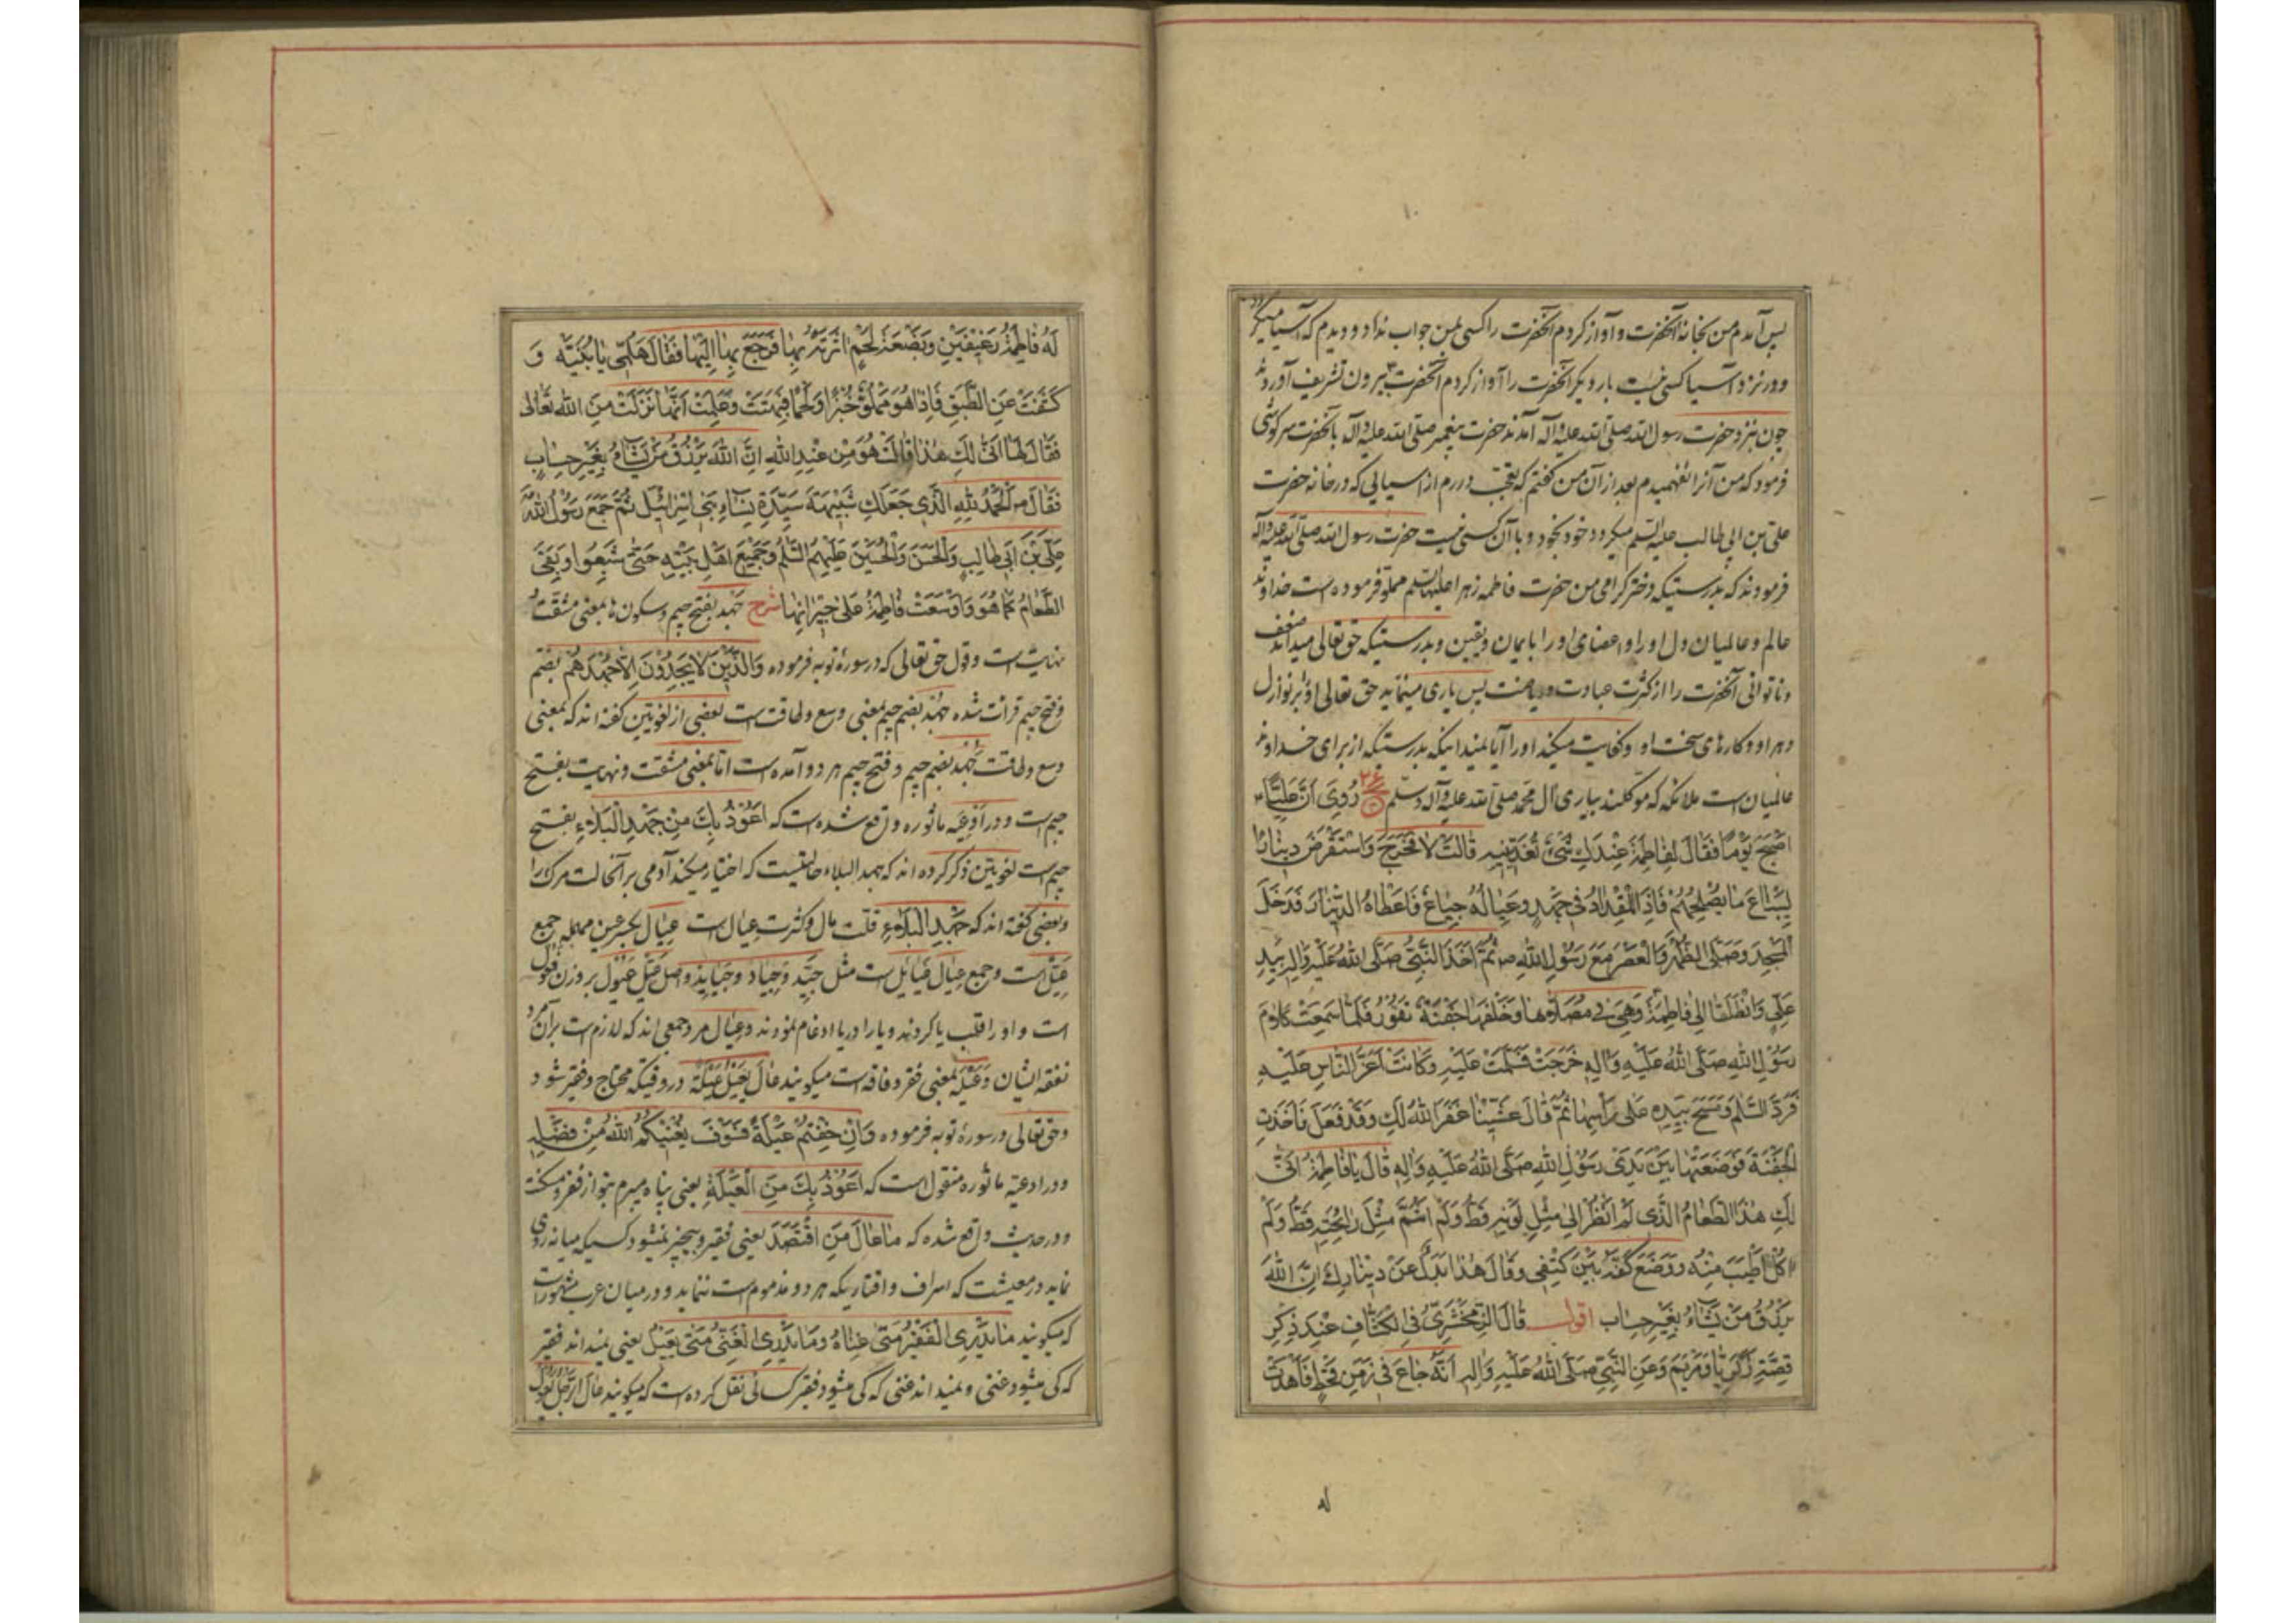 پس آمدم من بخانهٔ آنحضرت و آواز کردم آنحضرت را کسی بمن جواب نداد و دیدم که آسیا میگردد
و در نزد آسیا کسی نیست بار دیگر آنحضرت را آواز کردم آنحضرت بیرون تشریف آوردند
چون بنزد حضرت رسول الله صلی الله علیه وآله آمدند حضرت پیغمبر صلی الله علیه وآله بآنحضرت سرگوشی
فرمود که من آنرا نفهمیدم بعد از آن من گفتم که تعجب دارم از آسیایی که در خانه حضرت
علی بن ابی طالب علیه السلم میگردد خود بخود و با آن کسی نیست حضرت رسول الله صلی الله علیه وآله
فرمودند که بدرستیکه دختر کرامی من حضرت فاطمه زهرا علیها السلم مملو فرموده است خداوند
عالم و عالمیان دل او را و اعضای او را بایمان و یقین و بدرستیکه حق تعالی میداند ضعف
و ناتوانی آنحضرت را از کثرت عبادت و ریاضت پس یاری مینماید حق تعالی او را بر نوازل
دهر او و کارهای سخت او و کفایت میکند او را آیا نمیدانیکه بدرستیکه از برای خداوند
عالمیان است ملائکه که موکلند بیاری آل محمد صلی الله علیه وآله وسلم رُوِیَ اَنَّ عَلِیًّا
اَصْبَحَ یَوْمًا فَقَالَ لِفَاطِمَةَ عِنْدَكِ شَیْءٌ تُغَدِّینِیهِ قَالَتْ لَا فَخَرَجَ وَاسْتَقْرَضَ دِینَارًا
لِیَبْتَاعَ مَا یُصْلِحُهُمْ فَاِذَا الْمِقْدَادُ فِی جَهْدٍ وَعِیَالُهُ جِیَاعٌ فَاَعْطَاهُ الدِّینَارَ فَدَخَلَ
الْمَسْجِدَ وَصَلَّی الظُّهْرَ وَالْعَصْرَ مَعَ رَسُولِ اللهِ ص ثُمَّ اَخَذَ النَّبِیُّ صَلَّی اللهُ عَلَیْهِ وَآلِهِ بِیَدِ
عَلِیٍّ وَانْطَلَقَا اِلَی فَاطِمَةَ وَهِیَ فِی مُصَلَّاهَا وَخَلْفَهَا جَفْنَةٌ تَفُورُ فَلَمَّا سَمِعَتْ کَلَامَ
رَسُولِ اللهِ صَلَّی اللهُ عَلَیْهِ وَآلِهِ خَرَجَتْ فَسَلَّمَتْ عَلَیْهِ وَکَانَتْ اَعَزَّ النَّاسِ عَلَیْهِ
فَرَدَّ السَّلَمَ وَمَسَحَ بِیَدِهِ عَلَی رَأْسِهَا ثُمَّ قَالَ عَشِّینَا غَفَرَ اللهُ لَكِ وَقَدْ فَعَلَ فَاَخَذَتِ
الْجَفْنَةَ فَوَضَعَتْهَا بَیْنَ یَدَیْ رَسُولِ اللهِ صَلَّی اللهُ عَلَیْهِ وَآلِهِ قَالَ یَا فَاطِمَةُ اَنَّی
لَكِ هٰذَا الطَّعَامُ الَّذِی لَمْ اَنْظُرْ اِلَی مِثْلِ لَوْنِهِ قَطُّ وَلَمْ اَشُمَّ مِثْلَ رَایِحَتِهِ قَطُّ وَلَمْ
اٰکُلْ اَطْیَبَ مِنْهُ وَوَضَعَ کَفَّهُ بَیْنَ کَتِفَیَّ وَقَالَ هٰذَا بَدَلٌ عَنْ دِینَارِكَ اِنَّ اللهَ
یَرْزُقُ مَنْ یَشَاءُ بِغَیْرِ حِسَابٍ اقول قَالَ الزَّمَخْشَرِیُّ فِی الْکَشَّافِ عِنْدَ ذِکْرِ
قِصَّةِ زَکَرِیَّا وَمَرْیَمَ وَعَنِ النَّبِیِّ صَلَّی اللهُ عَلَیْهِ وَآلِهِ اَنَّهُ جَاعَ فِی زَمَنِ قَحْطٍ فَاَهْدَتْ
له
لَهُ فَاطِمَةُ رَغِیفَیْنِ وَبَضْعَةَ لَحْمٍ اٰثَرَتْهُ بِهَا فَرَجَعَ بِهَا اِلَیْهَا فَقَالَ هَلُمِّی یَا بُنَیَّة وَ
کَشَفَتْ عَنِ الطَّبَقِ فَاِذَا هُوَ مَمْلُوٌّ خُبْزًا وَلَحْمًا فَبُهِتَتْ وَعَلِمَتْ اَنَّهَا نَزَلَتْ مِنَ اللهِ تَعَالَی
فَقَالَ لَهَا اَنَّی لَكِ هٰذَا قَالَتْ هُوَ مِنْ عِنْدِ اللهِ اِنَّ اللهَ یَرْزُقُ مَنْ یَشَاءُ بِغَیْرِ حِسَابٍ
فَقَالَ ص اَلْحَمْدُ لِلّٰهِ الَّذِی جَعَلَكِ شَبِیهَةَ سَیِّدَةِ نِسَاءِ بَنِی اِسْرَائِیلَ ثُمَّ جَمَعَ رَسُولُ اللهِ
عَلِیَّ بْنَ اَبِی طَالِبٍ وَالْحَسَنَ وَالْحُسَیْنَ عَلَیْهِمُ السَّلَمُ وَجَمِیعَ اَهْلِ بَیْتِهِ حَتَّی شَبِعُوا وَبَقِیَ
الطَّعَامُ کَمَا هُوَ وَاَوْسَعَتْ فَاطِمَةُ عَلَی جِیرَانِهَا شرح جَهد بفتح جیم و سکون ها بمعنی مشقت و
نهایت است و قول حق تعالی که در سورهٔ توبه فرموده وَالَّذِینَ لَا یَجِدُونَ اِلَّا جُهْدَهُمْ بضم
و فتح جیم قرائت شده جُهْد بضم جیم بمعنی وسع و طاقت است بعضی از لغویین گفته اند که بمعنی
وسع و طاقت جُهد بضم جیم و فتح جیم هر دو آمده است اما بمعنی مشقت و نهایت بفتح
جیم است و در ادعیه ماثوره واقع شده است که اَعُوذُ بِكَ مِنْ جَهْدِ الْبَلَاءِ بفتح
جیم است لغویین ذکر کرده اند که جهد البلاء حالتیست که اختیار میکند آدمی بر آنحالت مرک را
و بعضی گفته اند که جَهْدِ الْبَلَاءِ قلت مال و کثرت عیال است عِیَال بکسر عین مهمله جمع
عَیِّل است و جمع عیال عیایل است مثل جیّد و جیاد و جیاید و اصل عیّل عَیْوِل بر وزن فیعل
است و او را قلب بیا کردند و یا را در یا ادغام نمودند و عیال مرد جمعی اند که لازم است بر آنمرد
نفقه ایشان و عَیْلَة بمعنی فقر و فاقه است میکویند عَالَ یَعِیلُ عَیْلَةً در وقتیکه محتاج و فقیر شود
و حق تعالی در سورهٔ توبه فرموده وَاِنْ خِفْتُمْ عَیْلَةً فَسَوْفَ یُغْنِیکُمُ اللهُ مِنْ فَضْلِهِ
و در ادعیّه ماثوره منقول است که اَعُوذُ بِكَ مِنَ الْعَیْلَةِ یعنی پناه میبرم بتو از فقر و مسکنت
و در حدیث واقع شده که مَا عَالَ مَنِ اقْتَصَدَ یعنی فقیر و بیچیز نمیشود کسیکه میانه روی
نماید در معیشت که اسراف و اقتار یکه هر دو مذموم است ننماید و در میان عرب مشهور است
که میکویند مَا یَدْرِی الْفَقِیرُ مَتَی غِنَاهُ وَمَا یَدْرِی الْغَنِیُّ مَتَی یَعِیلُ یعنی نمیداند فقیر
که کی میشود غنی و نمیداند غنی که کی میشود فقیر کسائی نقل کرده است که میکویند عال الرجل یعول